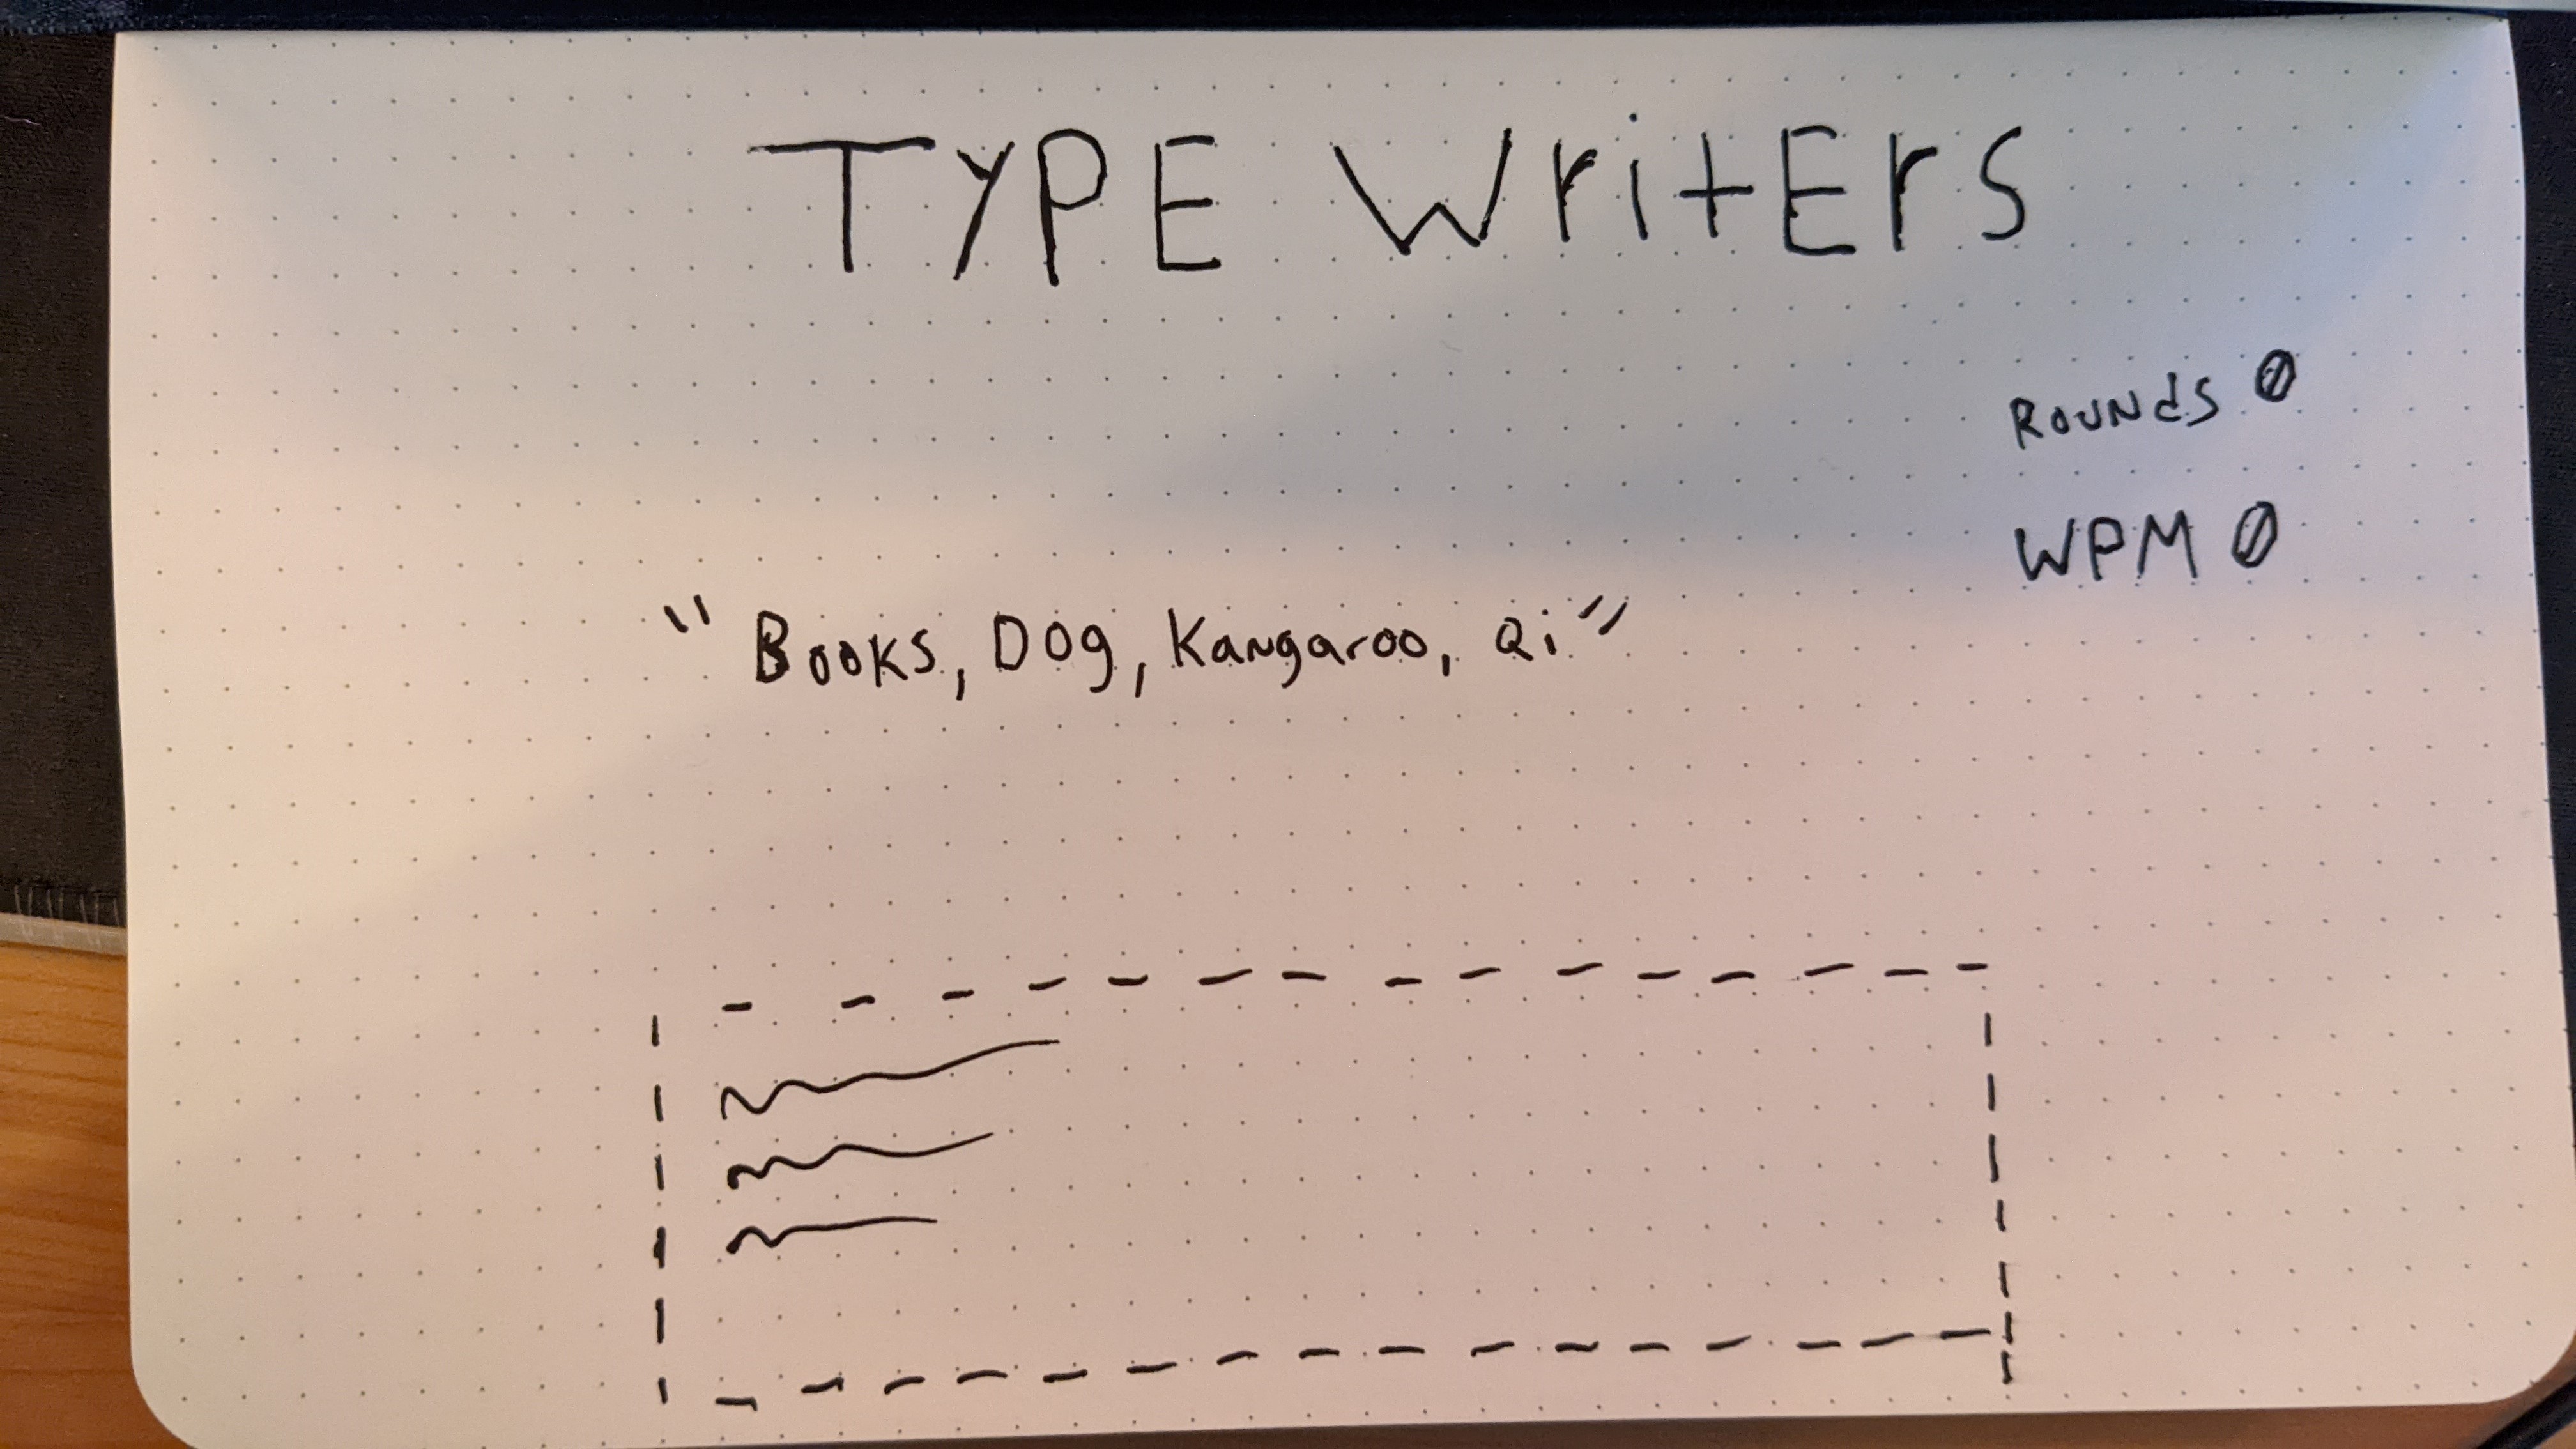 TYPE WritErs
Rounds 0
WPM 0
"Books, Dog, Kangaroo, Qi"